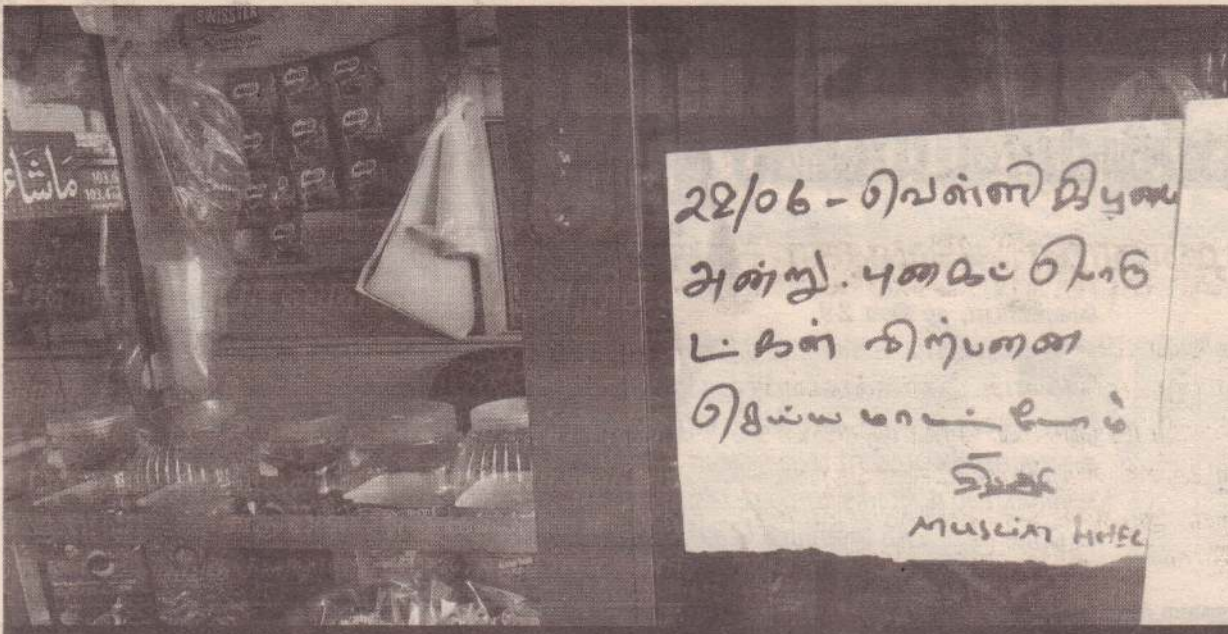 SWISSTEX
ماشاء
103.6
103.4
22/06 - வெள்ளி கிழமை
அன்று. புகைப் பொரு
ட்கள் விற்பனை
செய்ய மாட்டோம்
MUSLIM HOTEL